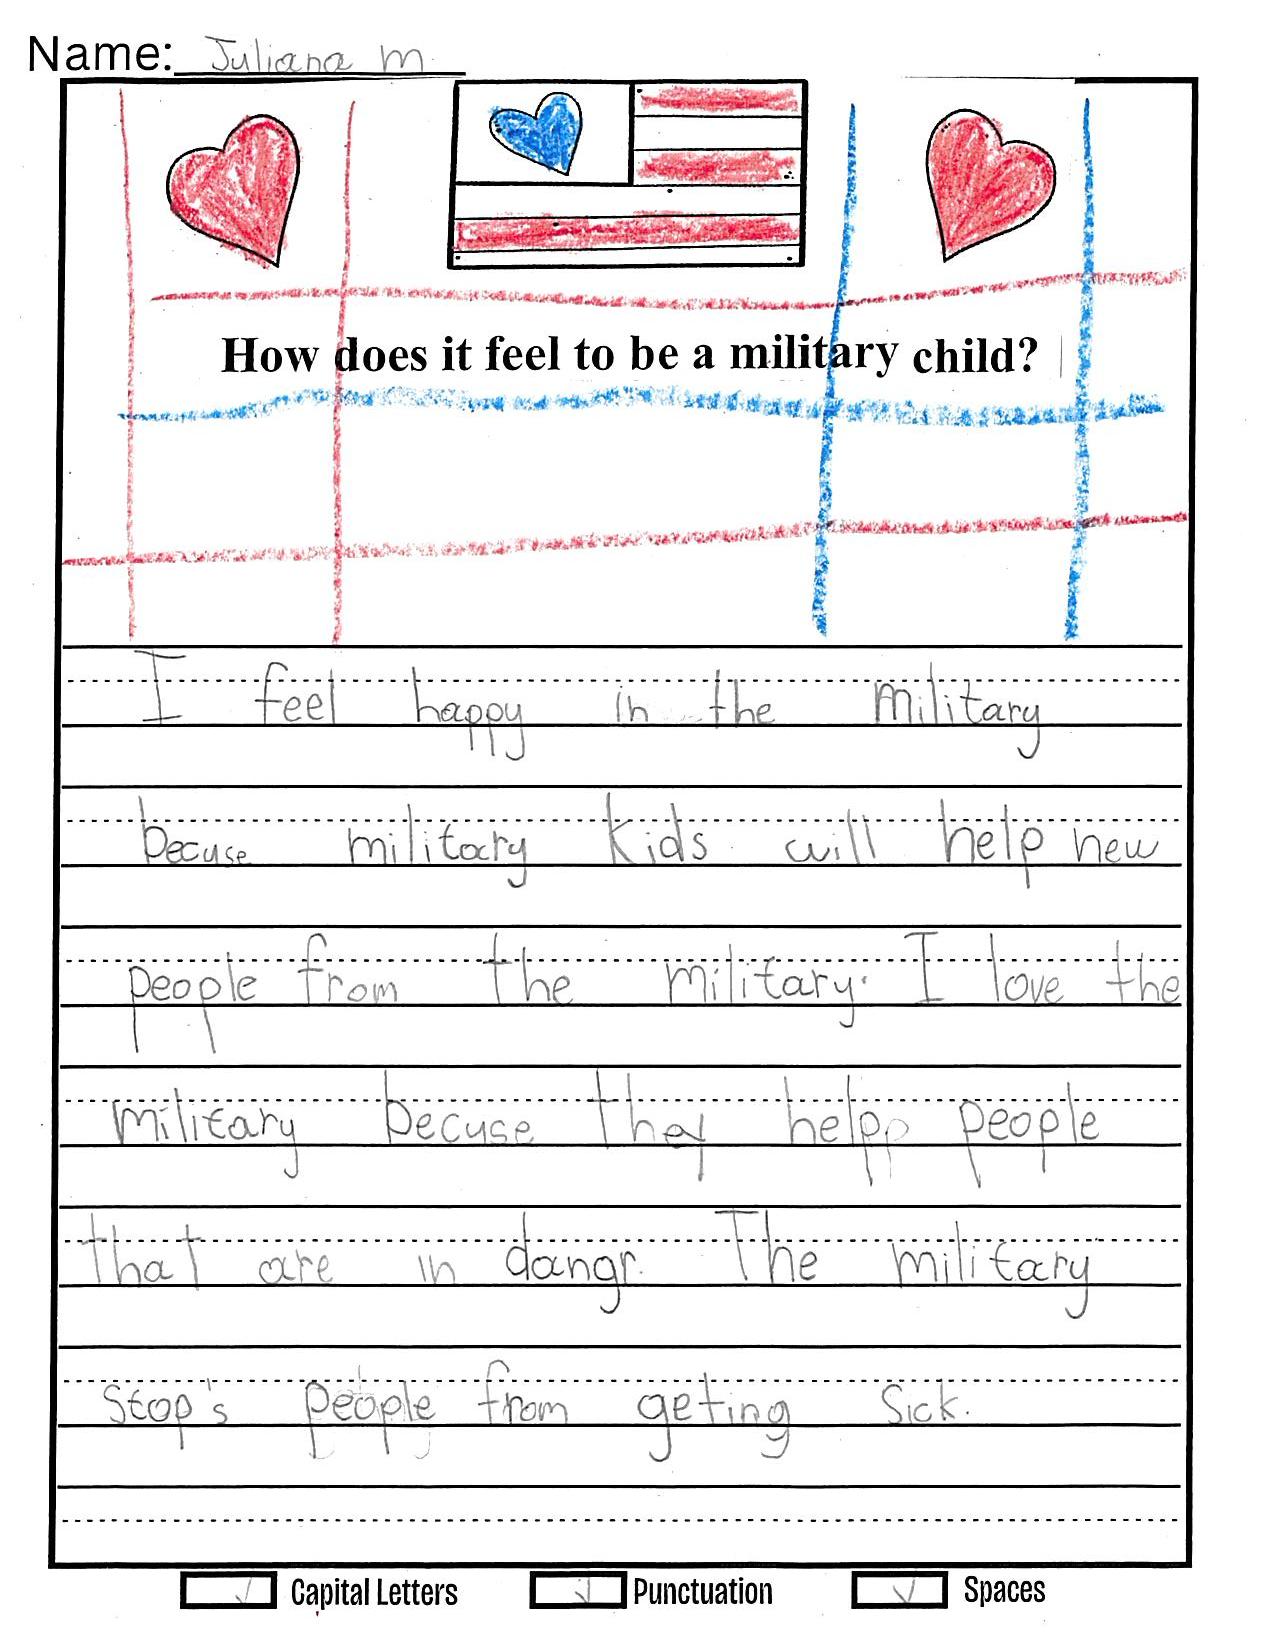 Name: Juliana M
How does it feel to be a military child?
I feel happy in the military
becuse military kids will help new
people from the military. I love the
military becuse thay help people
that are in dangr. The military
stop's people from geting sick.
Capital Letters Punctuation Spaces